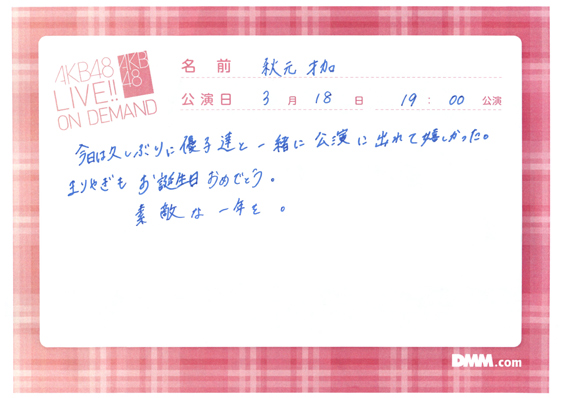 AKB48
LIVE!!
ON DEMAND
AKB
48
名前 秋元 才加
公演日 3月 18日 19:00 公演
今日は久しぶりに優子達と一緒に公演に出れて嬉しかった。
まりやぎも お誕生日おめでとう。
素敵な一年を。
DMM.com